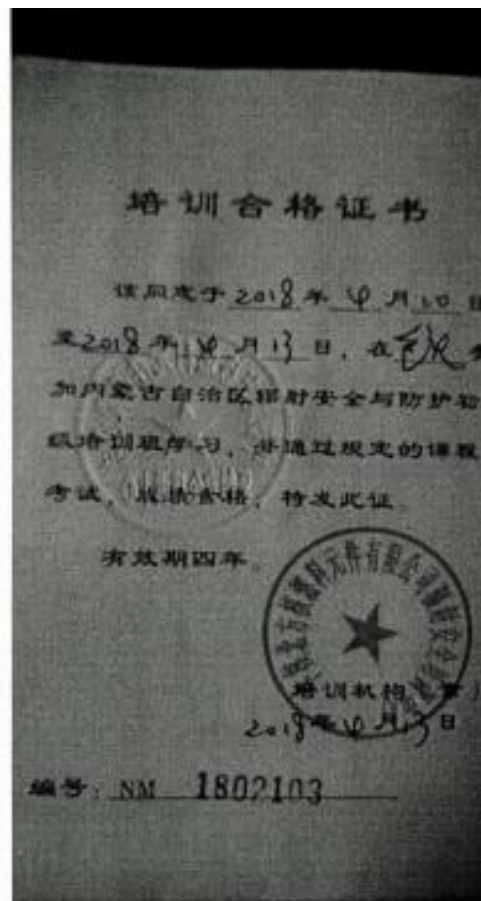 培训合格证书
该同志于2018年4月10日
至2018年4月13日，在包头参
加内蒙古自治区辐射安全与防护初
级培训班学习，并通过规定的课程
考试，成绩合格，特发此证
有效期四年。
北方核燃料元件有限公司辐射安全
培训机构（章）
2018年4月13日
编号：NM 1802103